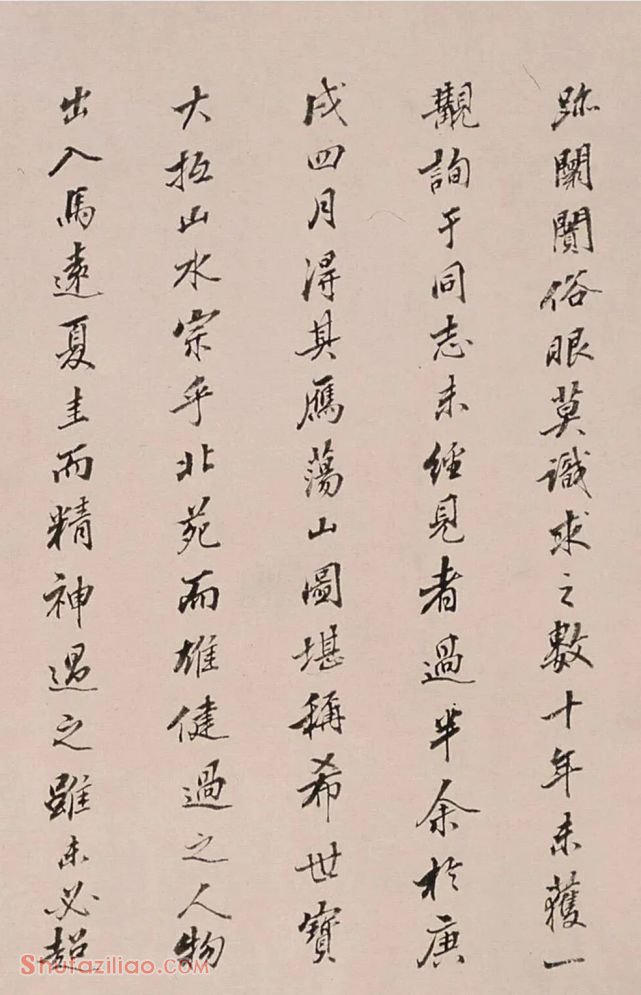 跡闌闠俗眼莫識求之數十年未獲一
觀詢于同志未經見者過半余於庚
戌四月得其鴈蕩山圖堪稱希世寶
大抵山水宗乎北苑而雄健過之人物
出入馬遠夏圭而精神過之雖未必超
Shufaziliao.com